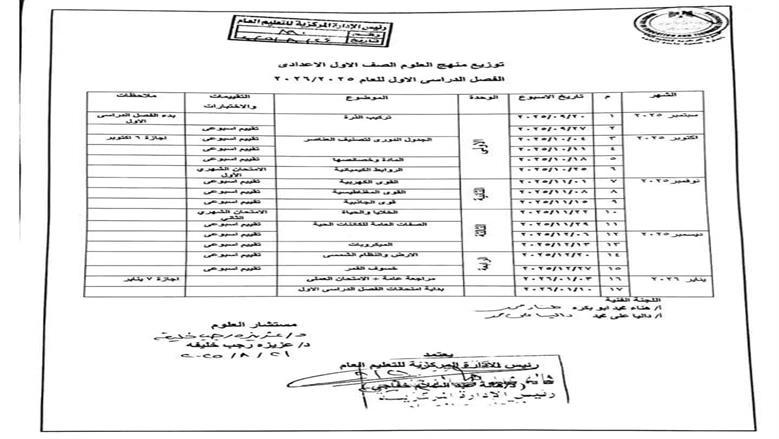 رئيس الإدارة المركزية للتعليم العام
رقم
تاريخ
توزيع منهج العلوم الصف الاول الاعدادى
الفصل الدراسى الاول للعام ٢٠٢٦/٢٠٢٥
الشهر م تاريخ الاسبوع الوحدة الموضوع التقييمات والاختبارات ملاحظات
سبتمبر ٢٠٢٥ ١ ٢٠٢٥/٠٩/٢٠ الاولى تركيب الذرة بدء الفصل الدراسى الاول
٢ ٢٠٢٥/٠٩/٢٧ تقييم اسبوعى
اكتوبر ٢٠٢٥ ٣ ٢٠٢٥/١٠/٠٤ الجدول الدورى لتصنيف العناصر تقييم اسبوعى اجازة ٦ اكتوبر
٤ ٢٠٢٥/١٠/١١ تقييم اسبوعى
٥ ٢٠٢٥/١٠/١٨ المادة وخصائصها تقييم اسبوعى
٦ ٢٠٢٥/١٠/٢٥ الروابط الكيميائية الامتحان الشهري الأول
نوفمبر ٢٠٢٥ ٧ ٢٠٢٥/١١/٠١ الثانية القوى الكهربية تقييم اسبوعى
٨ ٢٠٢٥/١١/٠٨ القوى المغناطيسية تقييم اسبوعى
٩ ٢٠٢٥/١١/١٥ قوى الجاذبية تقييم اسبوعى
١٠ ٢٠٢٥/١١/٢٢ الثالثة الخلايا والحياة الامتحان الشهري الثاني
١١ ٢٠٢٥/١١/٢٩ الصفات العامة للكائنات الحية تقييم اسبوعى
ديسمبر ٢٠٢٥ ١٢ ٢٠٢٥/١٢/٠٦ تقييم اسبوعى
١٣ ٢٠٢٥/١٢/١٣ الميكروبات تقييم اسبوعى
١٤ ٢٠٢٥/١٢/٢٠ الرابعة الارض والنظام الشمسى تقييم اسبوعى
١٥ ٢٠٢٥/١٢/٢٧ خسوف القمر تقييم اسبوعى
يناير ٢٠٢٦ ١٦ ٢٠٢٦/٠١/٠٣ مراجعة عامة + الامتحان العملى اجازة ٧ يناير
١٧ ٢٠٢٦/٠١/١٠ بداية امتحانات الفصل الدراسى الاول
اللجنة الفنية
أ/ هناء محمد ابو بكره
أ/ داليا على محمد داليا على محمد
مستشار العلوم
د/ عزيزه رجب خليفة
د/ عزيزه رجب خليفه
٢٠٢٥/٨/٢١
يعتمد
رئيس الادارة المركزية للتعليم العام
رئيس الإدارة المركزية